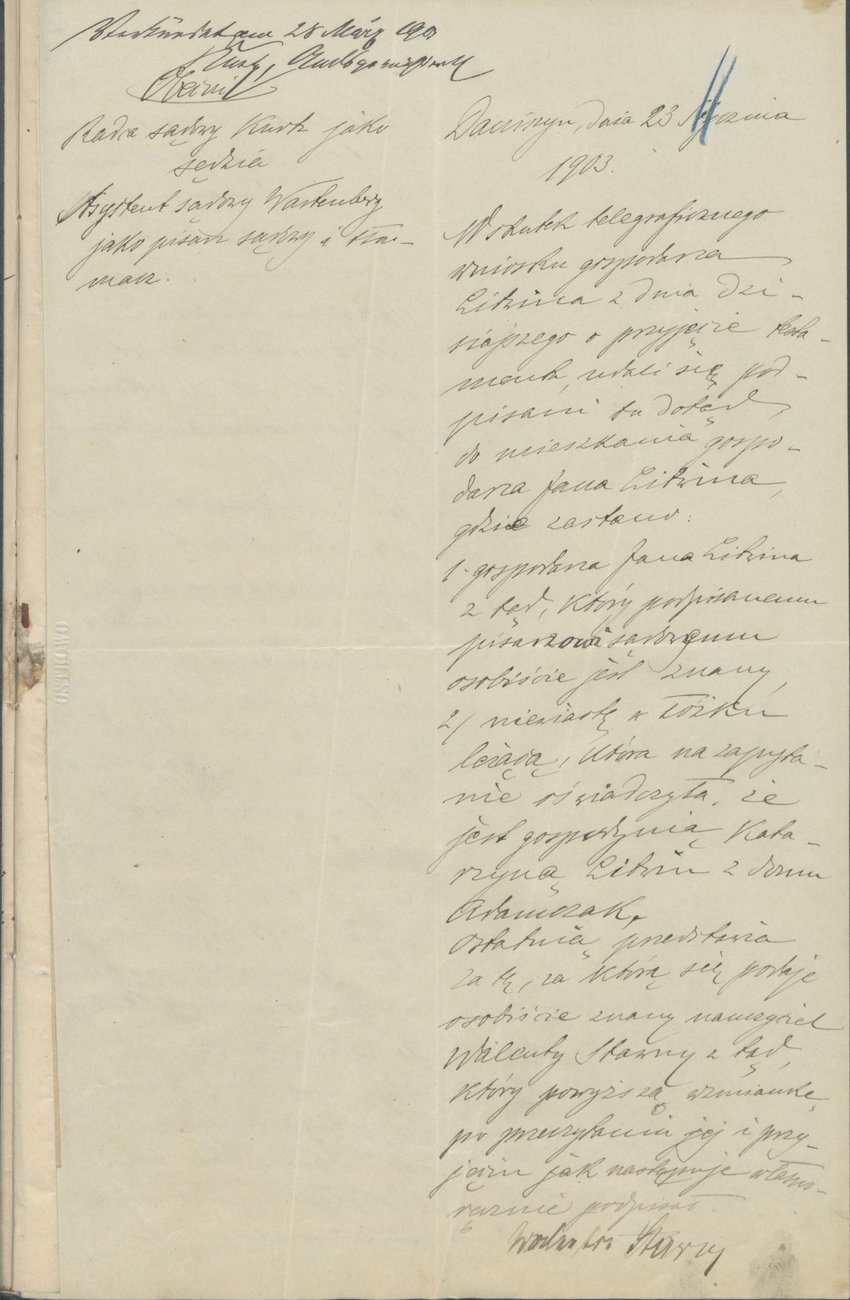 Verkündet am 28 März 190
Kurz,
Rada sądowy Kurtz jako
sędzia
Asystent sądowy Wartenberg
jako pisarz sądowy i tłó-
macz.
Daniszyn, dnia 23 Stycznia
1903.
W skutek telegraficznego
wniosku gospodarza
Litwina z dnia dzi-
siajszego o przyjęcie testa-
mentu, udali się pod-
pisani tu dotąd,
do mieszkania gospo-
darza Jana Litwina,
gdzie zastano:
1. gospodarza Jana Litwina
z tąd, który podpisanemu
pisarzowi sądowemu
osobiście jest znany,
2/ niewiastę w łóżku
leżącą, która na zapyta-
nie oświadczyła, że
jest gospodynią Kata-
rzyną Litwin z domu
Adamczak,
Ostatnią przedstawia
za tę, za którą się podaje
osobiście znany nauczyciel
Walenty Stawny z tąd,
który powyższą wzmiankę
po przeczytaniu jej i przy-
jęciu jak następuje własno-
ręcznie podpisał.
Stawny
OSTROWO